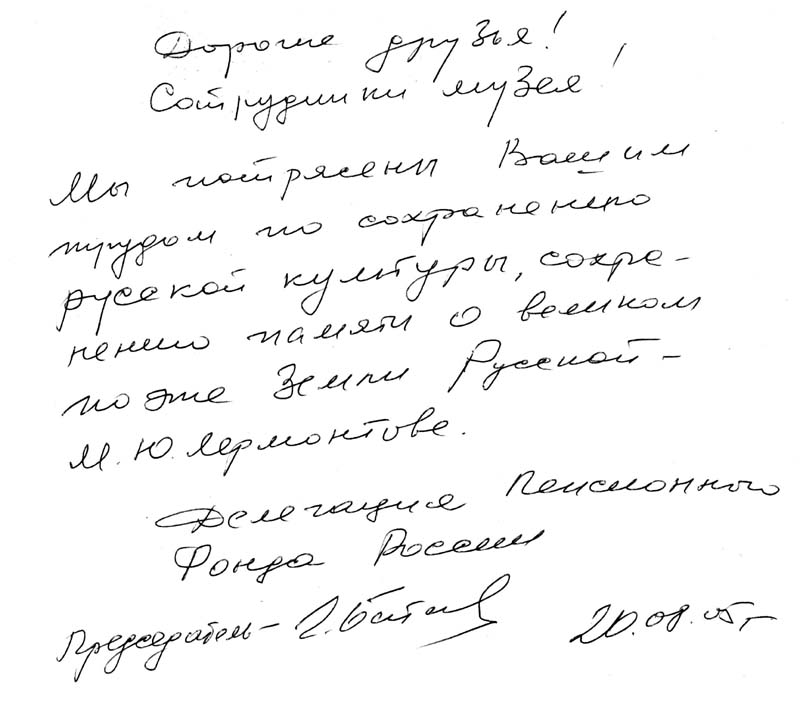 Дорогие друзья!
Сотрудники музея!
Мы потрясены Вашим
трудом по сохранению
русской культуры, сохра-
нению памяти о великом
поэте Земли Русской –
М.Ю. Лермонтове.
Делегация Пенсионного
Фонда России
Председатель –
20.08.05г